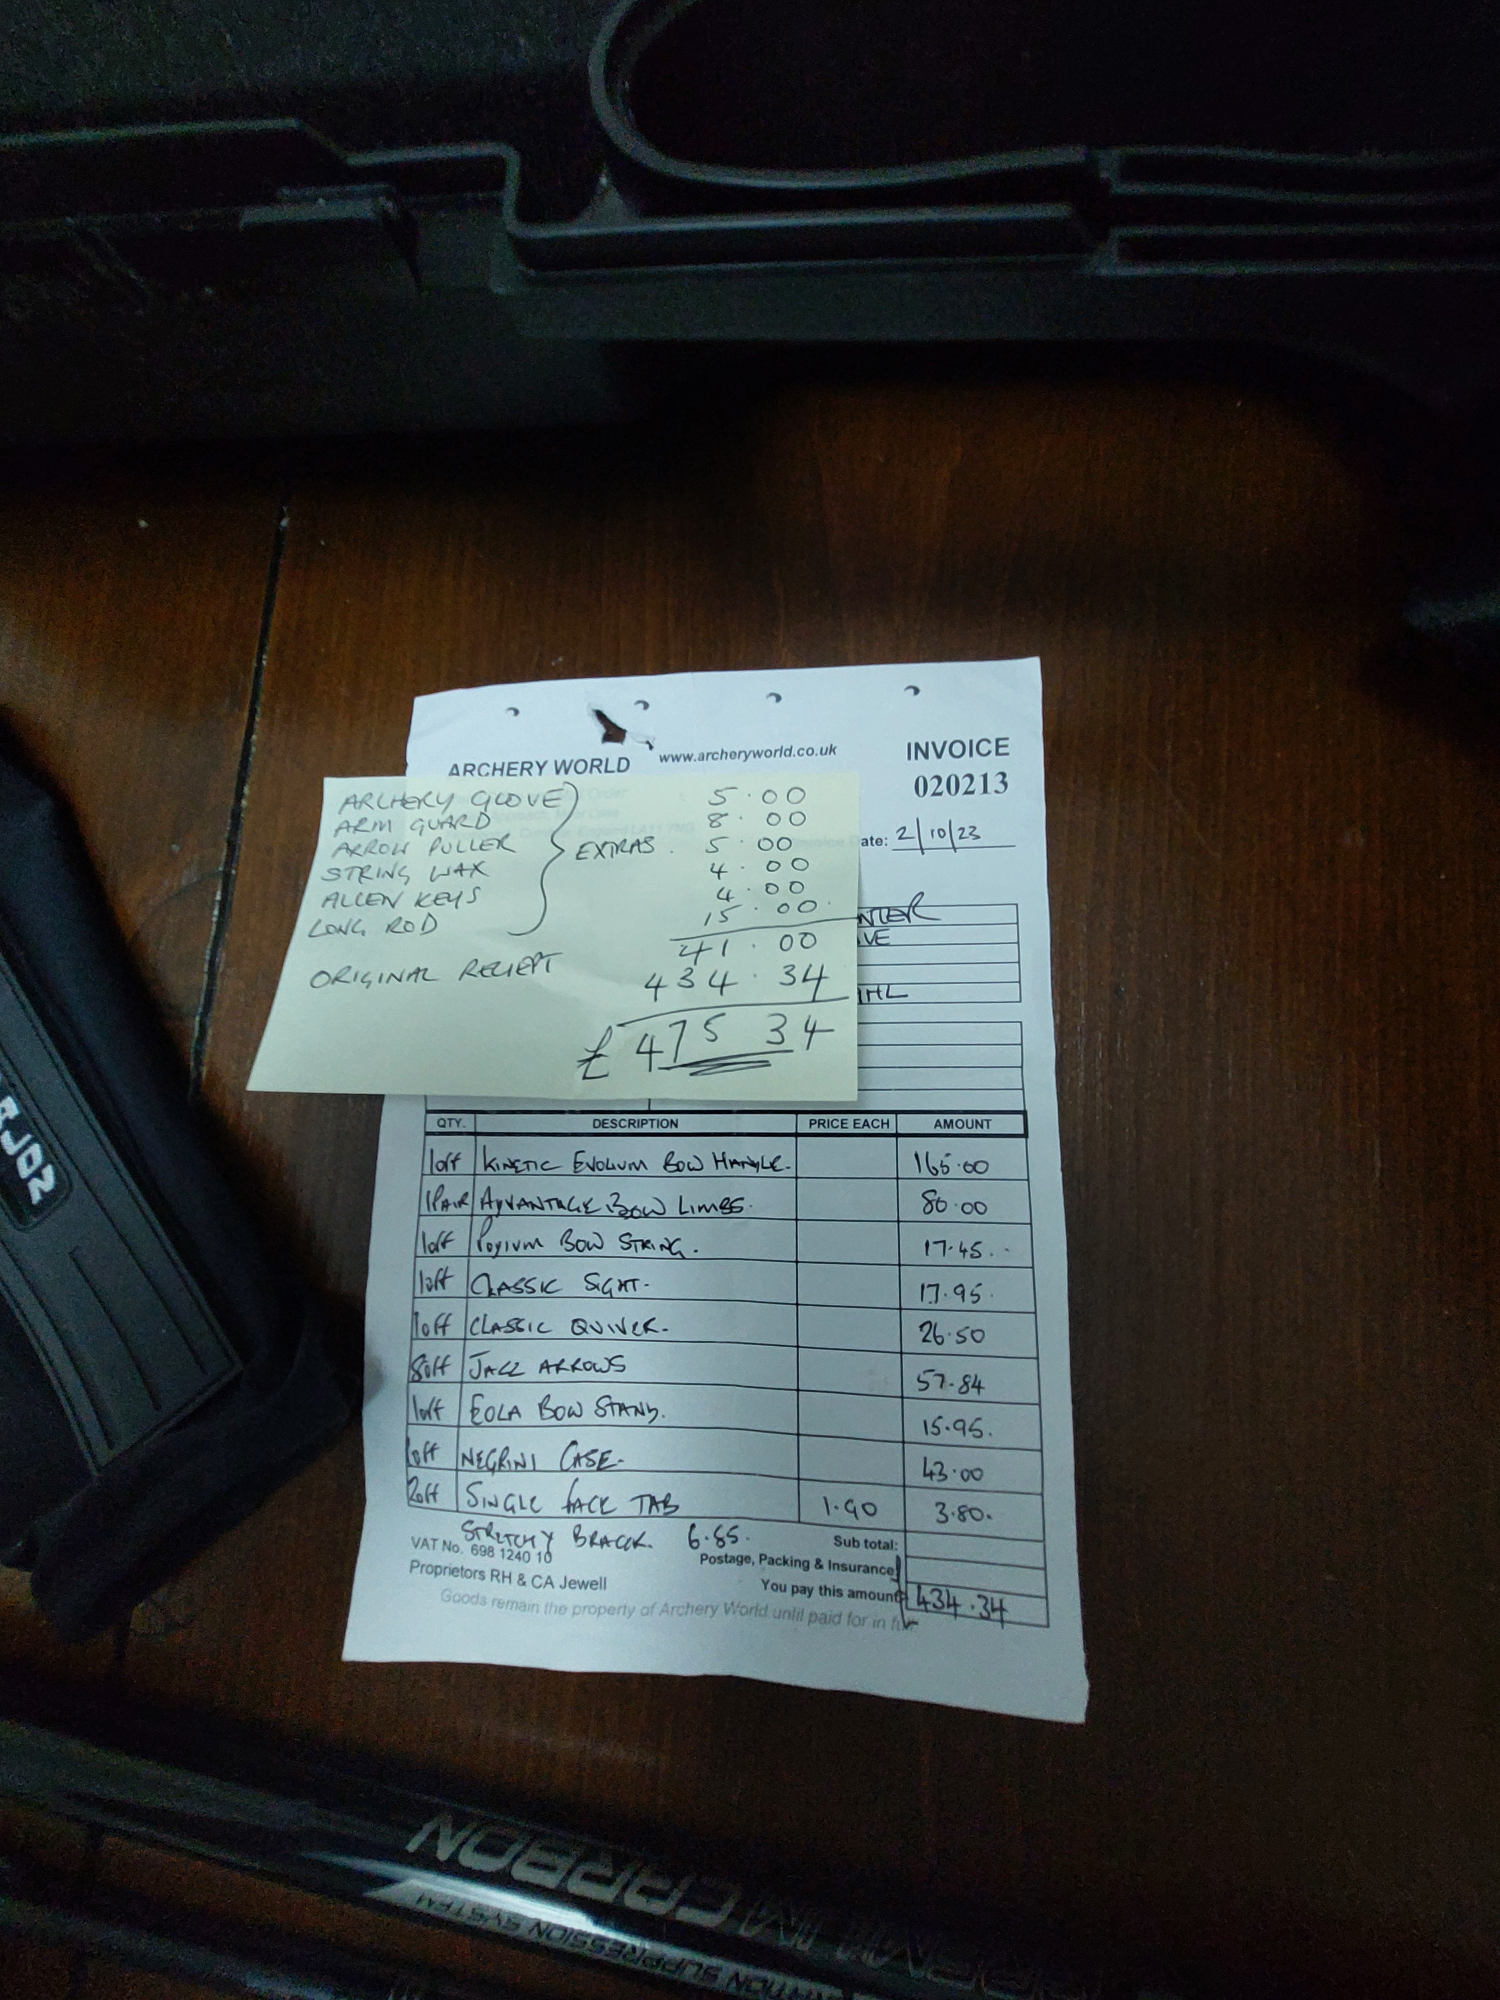 ARCHERY WORLD
www.archeryworld.co.uk
INVOICE
020213
ate: 2/10/23
ARCHERY GLOVE 5.00
ARM GUARD 8.00
ARROW PULLER EXTRAS. 5.00
STRING WAX 4.00
ALLEN KEYS 4.00
LONG ROD 15.00
41.00
ORIGINAL RECIEPT 434.34
£475 34
NTER
VE
QTY. DESCRIPTION PRICE EACH AMOUNT
1off KINETIC EVOLIUM BOW HANDLE. 165.00
1PAIR ADVANTAGE BOW LIMBS. 80.00
1off PODIUM BOW STRING. 17.45
1off CLASSIC SIGHT. 17.95
1off CLASSIC QUIVER. 26.50
8off JAZZ ARROWS 57.84
1off EOLA BOW STAND. 15.95.
1off NEGRINI CASE. 43.00
2off SINGLE FACE TAB 1.90 3.80.
STRETCHY BRACER. 6.85.
Sub total:
VAT No. 698 1240 10
Postage, Packing & Insurance
Proprietors RH & CA Jewell
You pay this amount 434.34
Goods remain the property of Archery World until paid for in full
RJ02
CARBON
SUPPRESSION SYSTEM